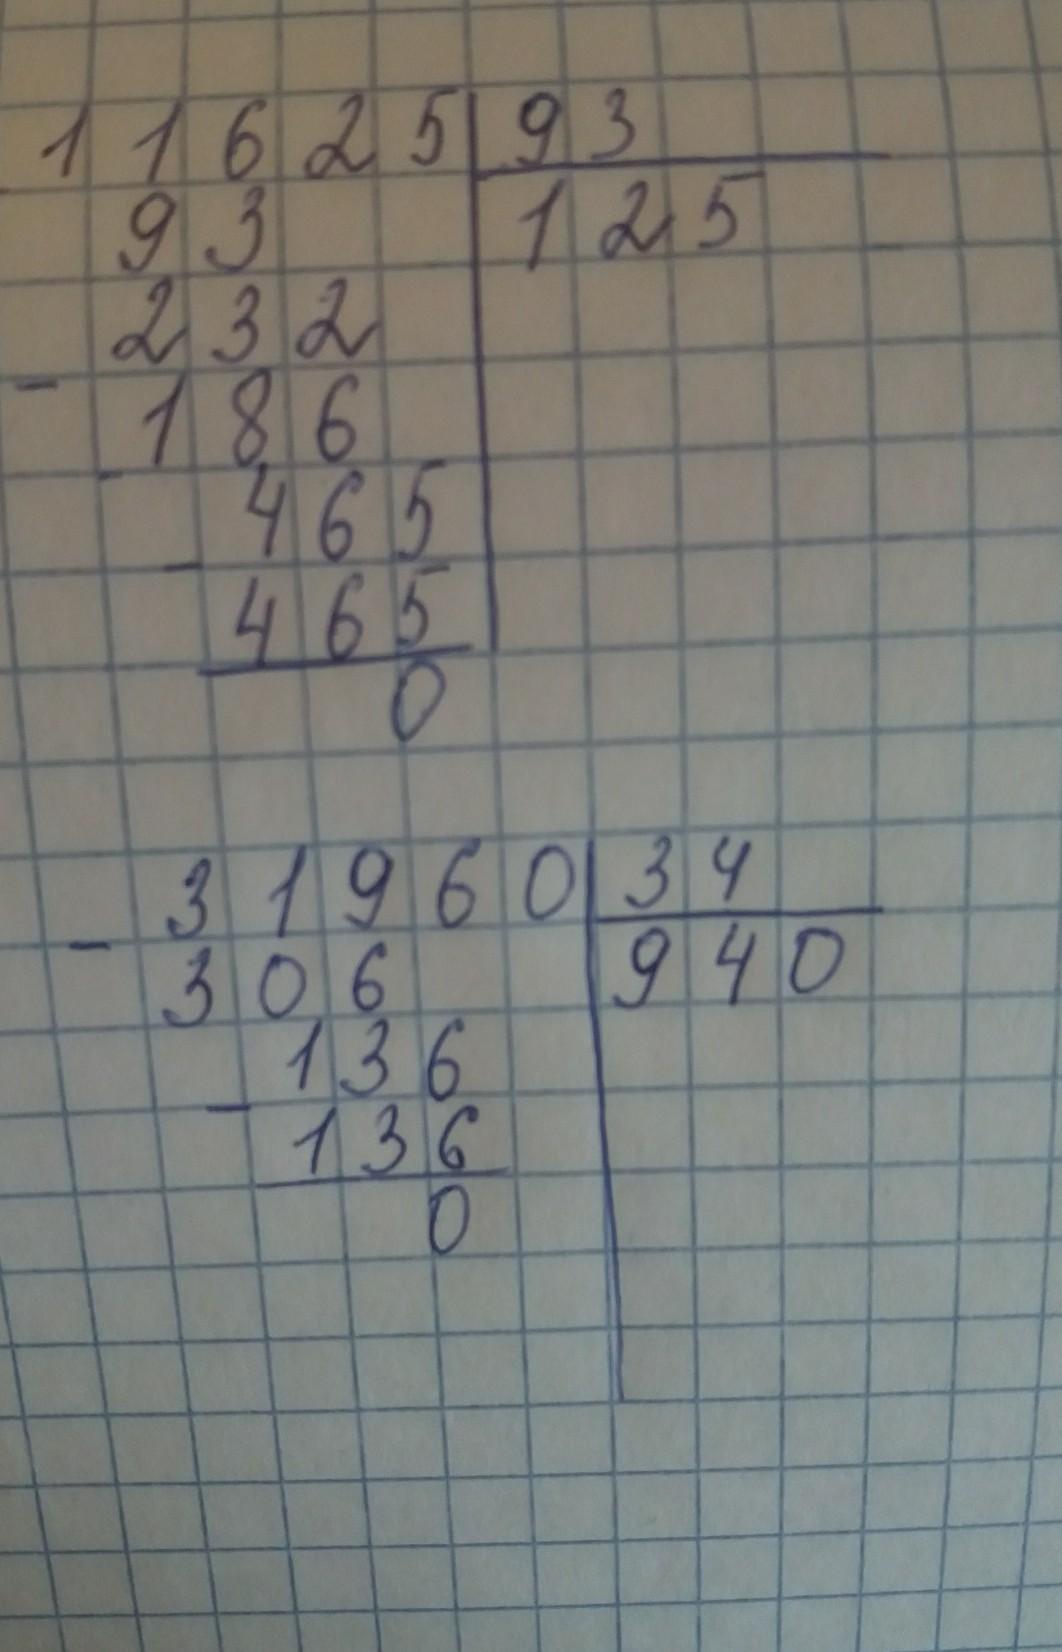 11625 93
- 93 125
232
- 186
465
- 465
0
31960 34
- 306 940
136
- 136
0